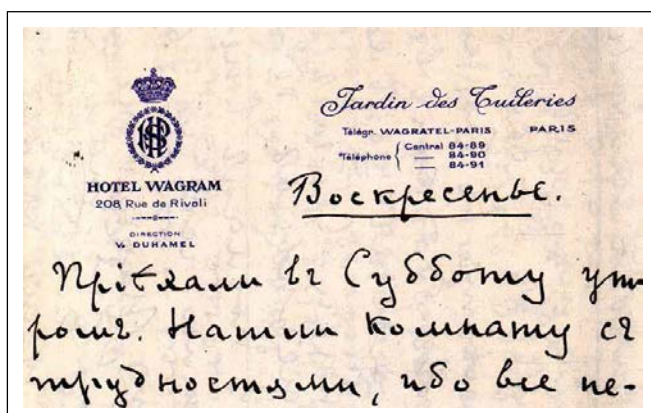 HOTEL WAGRAM
208, Rue de Rivoli
DIRECTION
V. DUHAMEL
Jardin des Tuileries
Télégr. WAGRATEL-PARIS PARIS
Téléphone { Central 84-89
— 84-90
— 84-91
Воскресенье.
Пріѣхали въ Субботу ут-
ромъ. Нашли комнату съ
трудностями, ибо все пе-